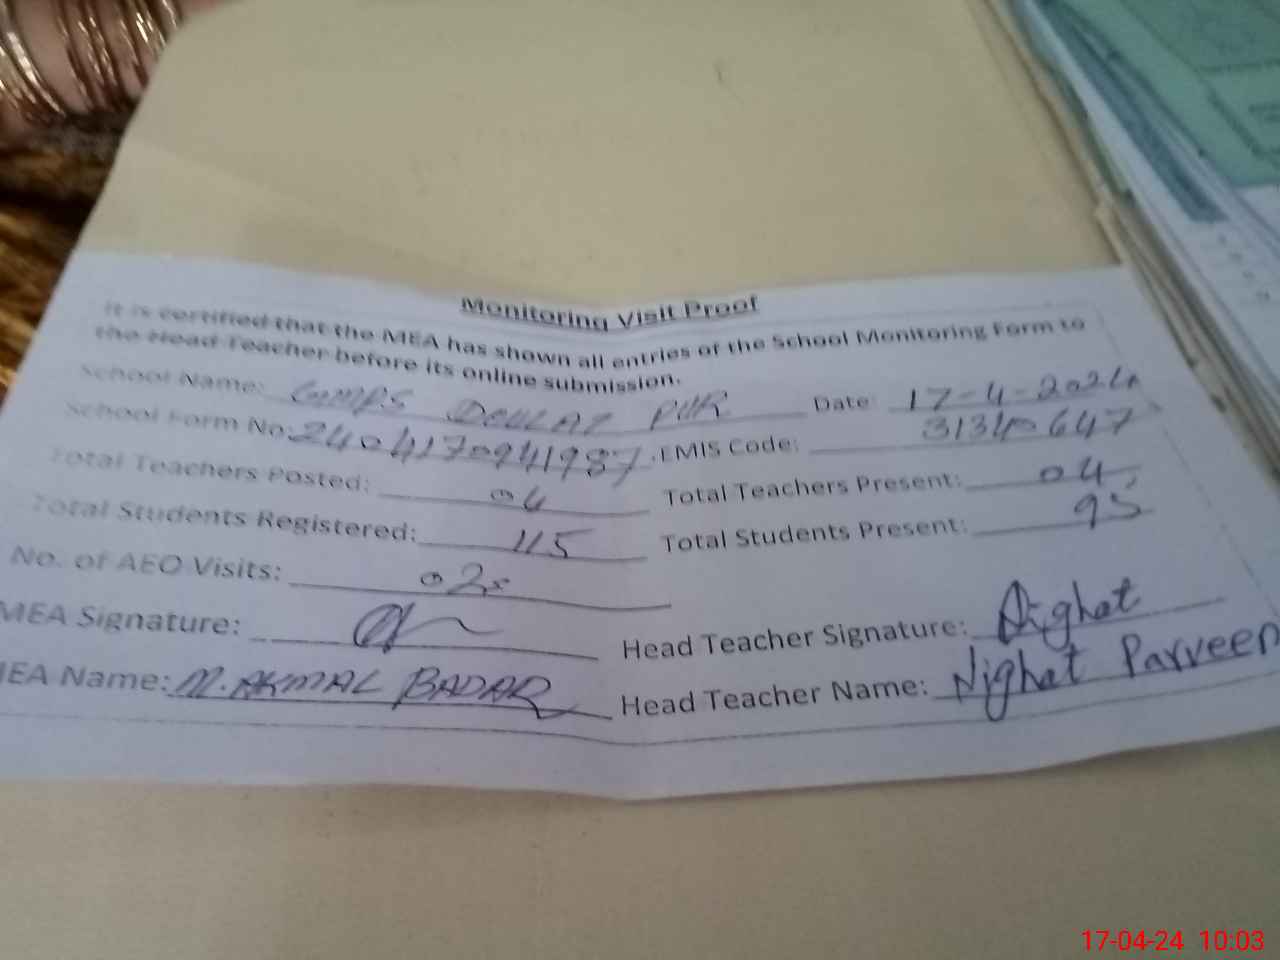 Monitoring Visit Proof
It is certified that the MEA has shown all entries of the School Monitoring Form to
the Head Teacher before its online submission.
School Name: GMPS DOULAT PUR Date: 17-4-2024
School Form No: 2404170941987 EMIS Code: 31340647
Total Teachers Posted: 04 Total Teachers Present: 04
Total Students Registered: 115 Total Students Present: 95
No. of AEO Visits: 02
MEA Signature: Head Teacher Signature: Nighat
MEA Name: M. AKMAL BADAR Head Teacher Name: Nighat Parveen
17-04-24 10:03